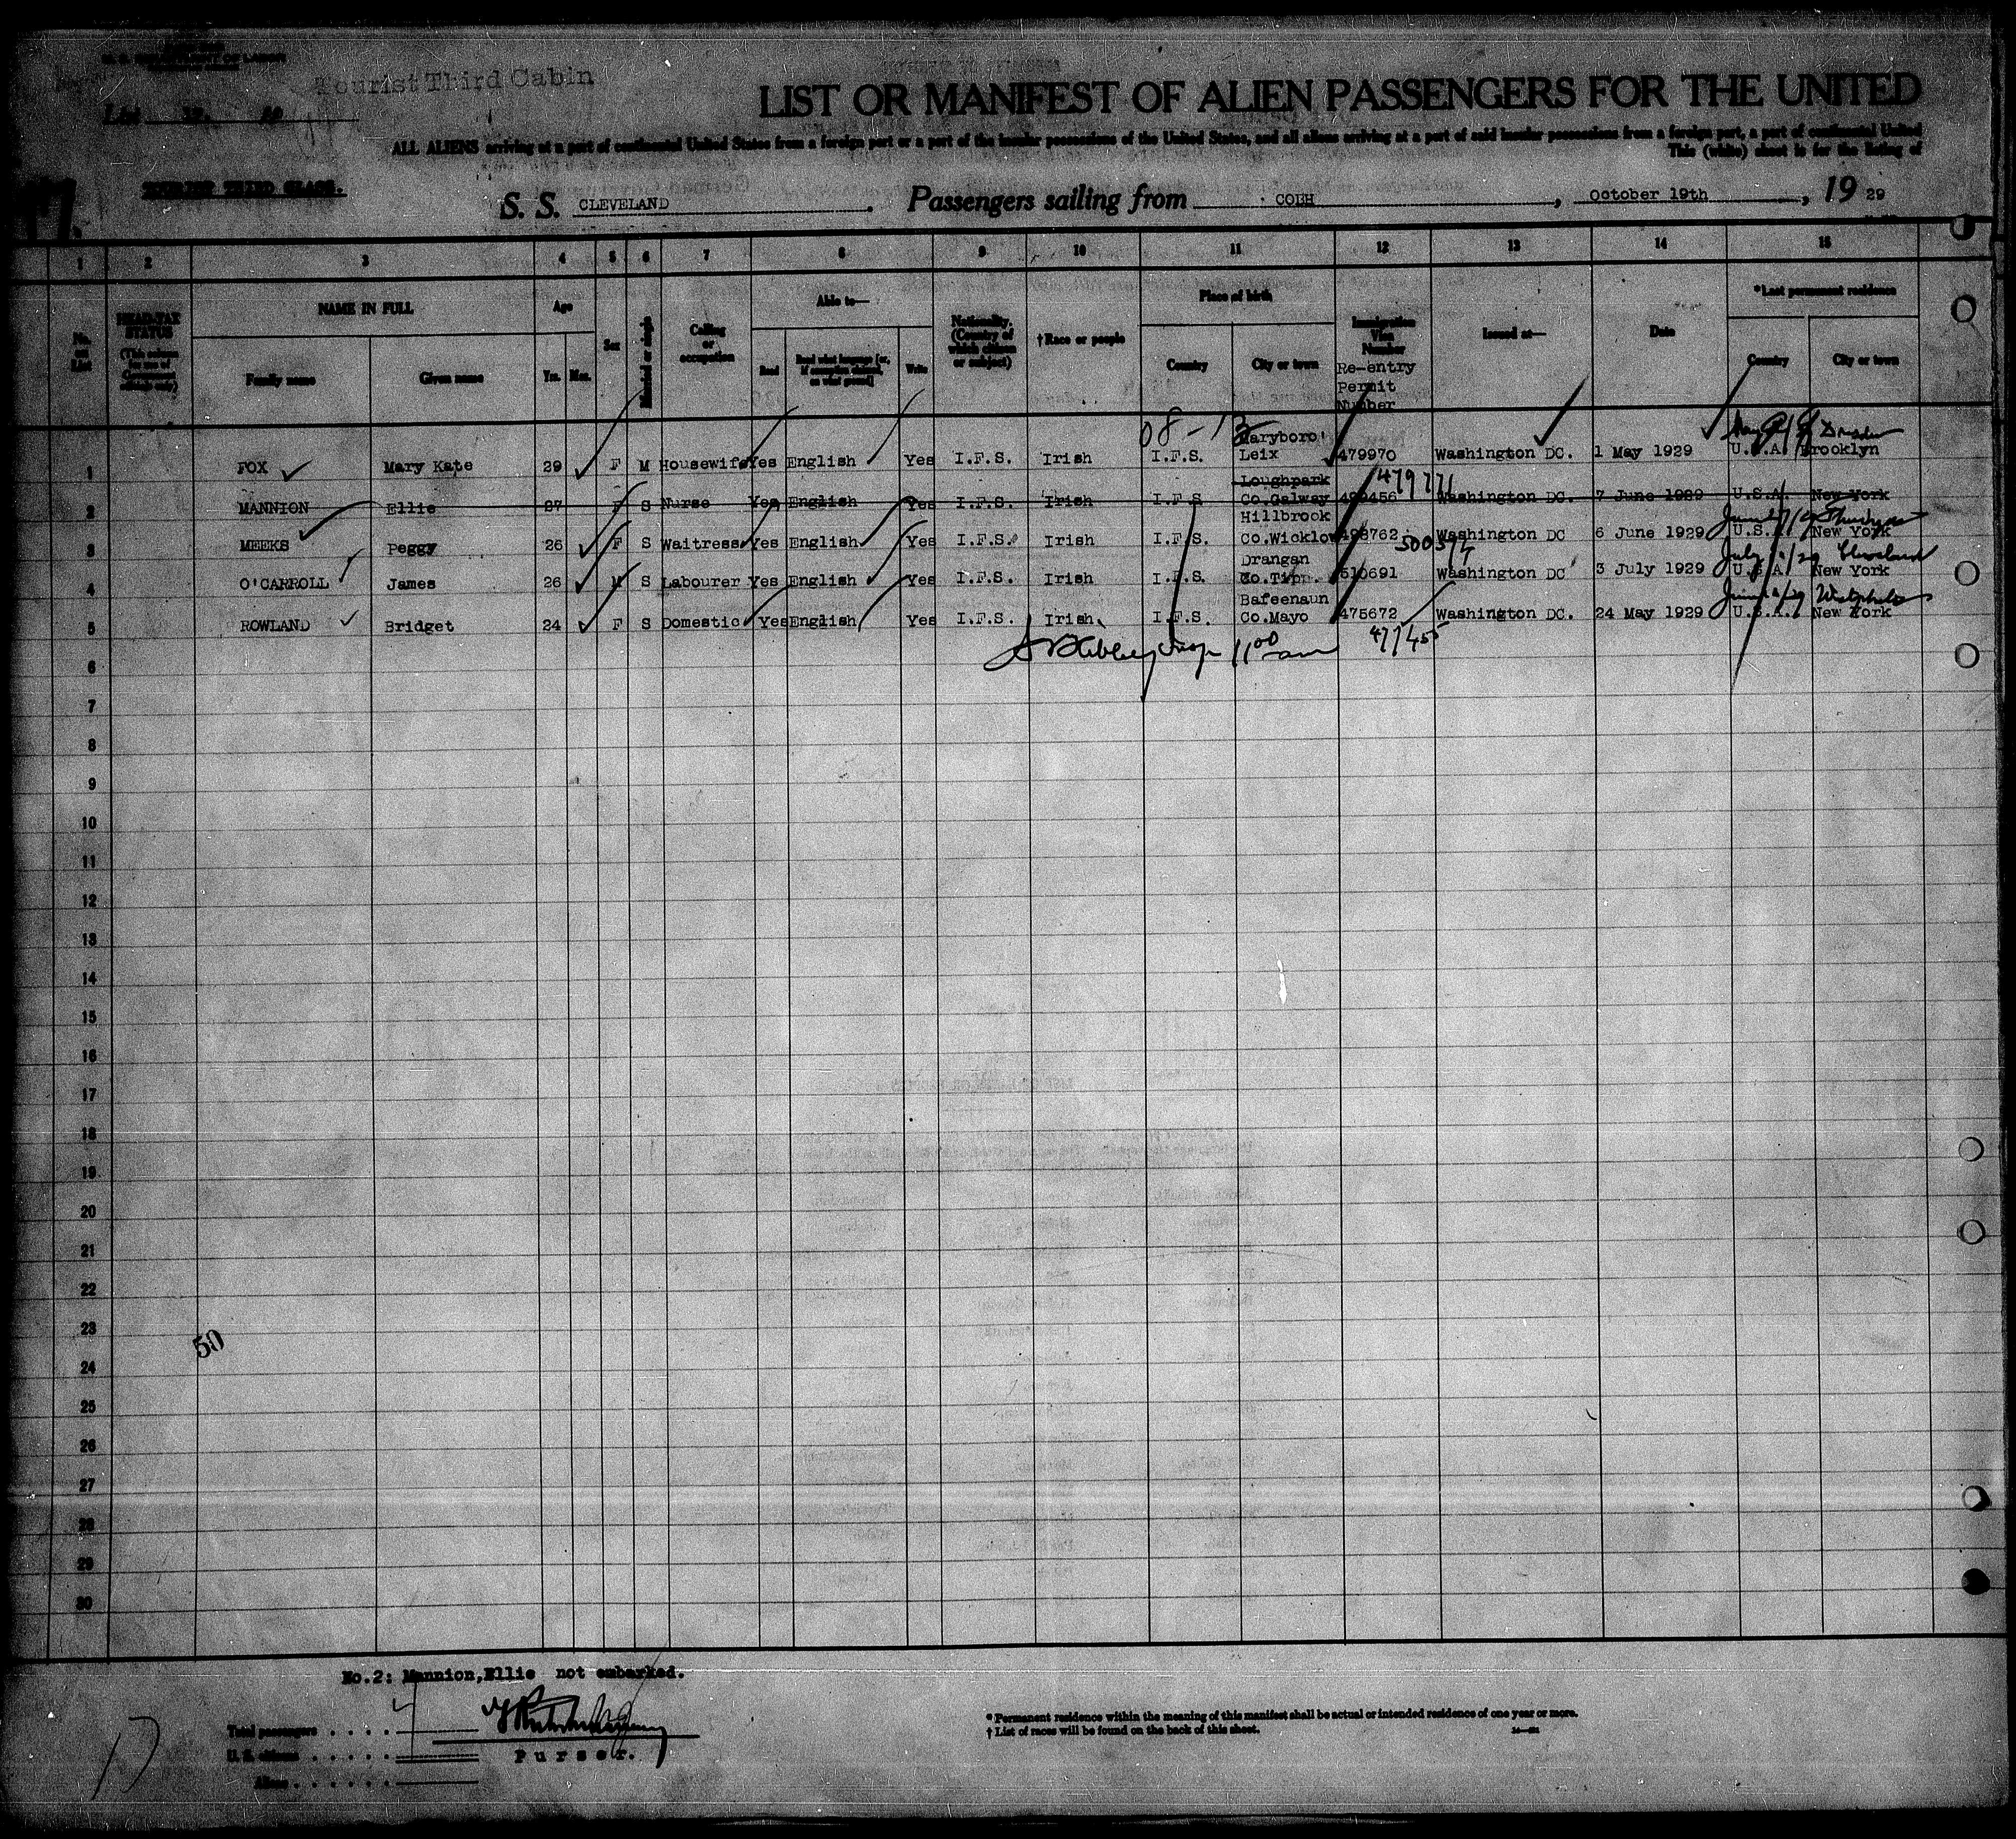 U. S. DEPARTMENT OF LABOR
Tourist Third Cabin
List
LIST OR MANIFEST OF ALIEN PASSENGERS FOR THE UNITED
ALL ALIENS arriving at a port of continental United States from a foreign port or a port of the insular possessions of the United States, and all aliens arriving at a port of said insular possessions from a foreign port, a port of continental United
This (white) sheet is for the listing of
TOURIST THIRD CLASS.
S. S. CLEVELAND. Passengers sailing from COBH, October 19th, 19 29
1 2 3 4 5 6 7 8 9 10 11 12 13 14 15
No. on List
HEAD-TAX STATUS (This column for use of Government officials only)
NAME IN FULL
Family name Given name
Age
Yrs. Mos.
Sex
Married or single
Calling or occupation
Able to—
Read Read what language [or, if exemption claimed, on what ground] Write
Nationality. (Country of which citizen or subject)
†Race or people
Place of birth
Country City or town
Immigration Visa Number
Re-entry Permit Number
Issued at—
Date
*Last permanent residence
Country City or town
08-13
1 FOX Mary Kate 29 F M Housewife Yes English Yes I.F.S. Irish I.F.S. Maryboro' Leix 479970 Washington DC. 1 May 1929 U.S.A. Brooklyn
Dresden
2 MANNION Ellie 27 F S Nurse Yes English Yes I.F.S. Irish I.F.S. Loughpark Co.Galway Washington DC. 7 June 1929 U.S.A. New York
3 MEEKS Peggy 26 F S Waitress Yes English Yes I.F.S. Irish I.F.S. Hillbrook Co.Wicklow 498762 Washington DC 6 June 1929 U.S.A. New York
4 O'CARROLL James 26 M S Labourer Yes English Yes I.F.S. Irish I.F.S. Drangan Co.Tipp. 510691 Washington DC 3 July 1929 U.S.A. New York
July Cleveland
5 ROWLAND Bridget 24 F S Domestic Yes English Yes I.F.S. Irish I.F.S. Bafeenaun Co.Mayo 475672 Washington DC. 24 May 1929 U.S.A. New York
477455
6
7
8
9
10
11
12
13
14
15
16
17
18
19
20
21
22
23
50
24
25
26
27
28
29
30
No.2: Mannion,Ellie not embarked.
Total passengers . . . . 4
U. S. citizens . . . . .
Aliens . . . . . .
Purser.
* Permanent residence within the meaning of this manifest shall be actual or intended residence of one year or more.
† List of races will be found on the back of this sheet.
17